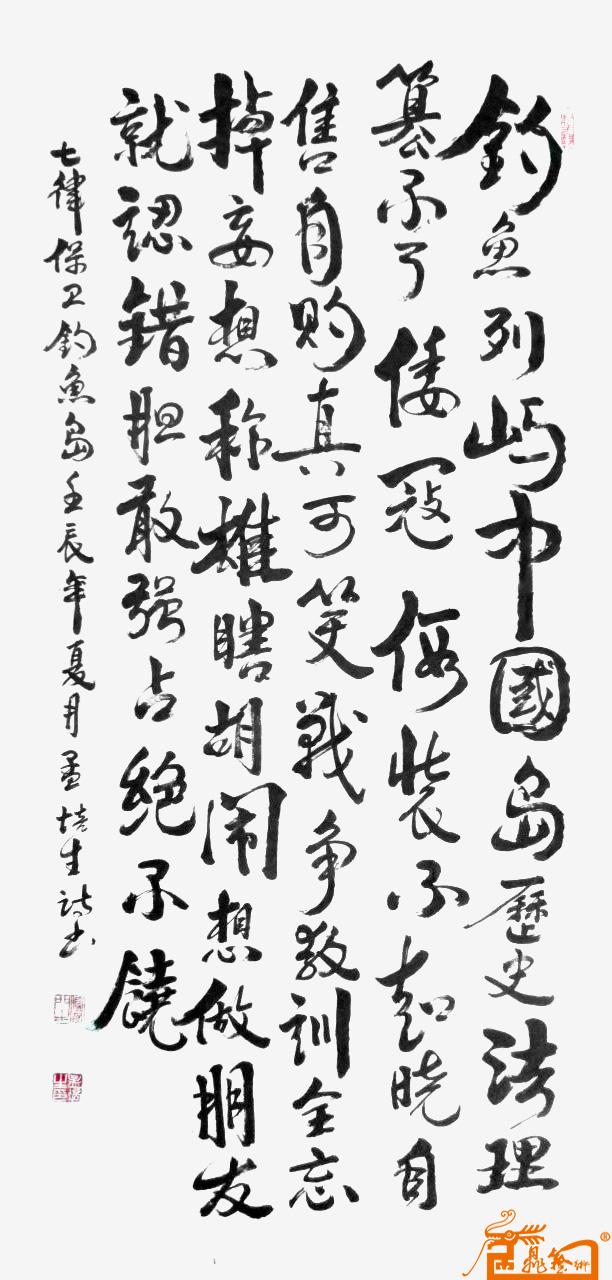 钓鱼列屿中國岛歷史法理
篡不了倭冠侵装不知晓自
售自购真可笑战争教训全忘
掉妄想称雄瞎胡闹想做朋友
就認错胆敢强占绝不饶
七律保卫钓鱼岛壬辰年夏月孟培生诗书